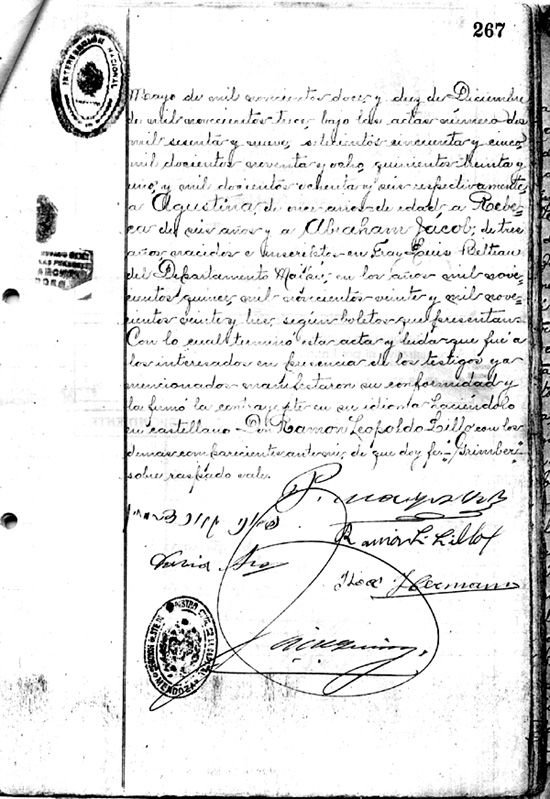 267
INTERVENCIÓN NACIONAL
Mayo de mil novecientos doce y diez de Diciembre
de mil novecientos trece, bajo las actas número dos
mil sesenta y nueve, setecientos cincuenta y cinco
mil docientos noventa y ocho, quinientos treinta y
uno, y mil docientos ochenta y seis respectivamente,
a Agustina de once años de edad, a Rebe-
ca de seis años y a Abraham Jácob, de tres
años nacidos e inscriptos en Fray Luis Beltran
del Departamento Maipú, en los años mil nove-
cientos quince, mil novecientos veinte y mil nove-
cientos veinte y tres, según boletos que presentan.
Con lo cual terminó esta acta y leída que fué a
los interesados en presencia de los testigos ya
mencionados manifestaron su conformidad y
la firmó la contrayente en su idioma haciéndolo
en castellano Don Ramón Leopoldo Lillo con los
demas comparecientes ante mi, de que doy fe.
sobre raspado vale.
Ramón L. Lillo